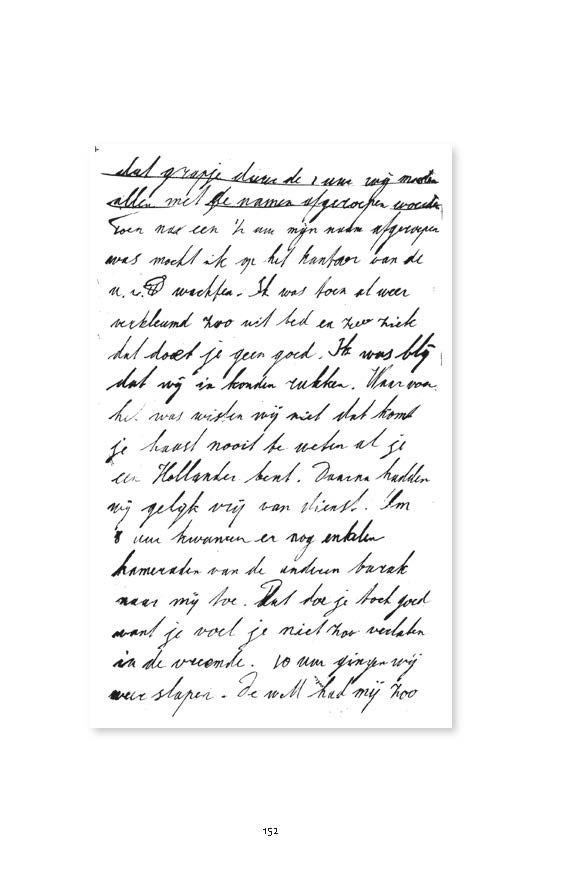 dat grapje duurde 1 uur wij moesten
allen met de namen afgeroepen worden
Toen na een ½ uur mijn naam afgeroepen
was mocht ik op het kantoor van de
wachten. Ik was toen al weer
verkleumd zoo uit bed en zeer ziek
dat doet je geen goed. Ik was blij
dat wij in konden rukken. Waarvoor
het was wisten wij niet dat komt
je haast nooit te weten al je
een Hollander bent. Daarna hadden
wij gelijk vrij van dienst. Om
8 uur kwamen er nog enkelen
kameraden van de anderen barak
naar mij toe. Dat doe je toch goed
want je voel je niet zoo verlaten
in de vreemde. 10 uur gingen wij
weer slapen. De had mij zoo
152